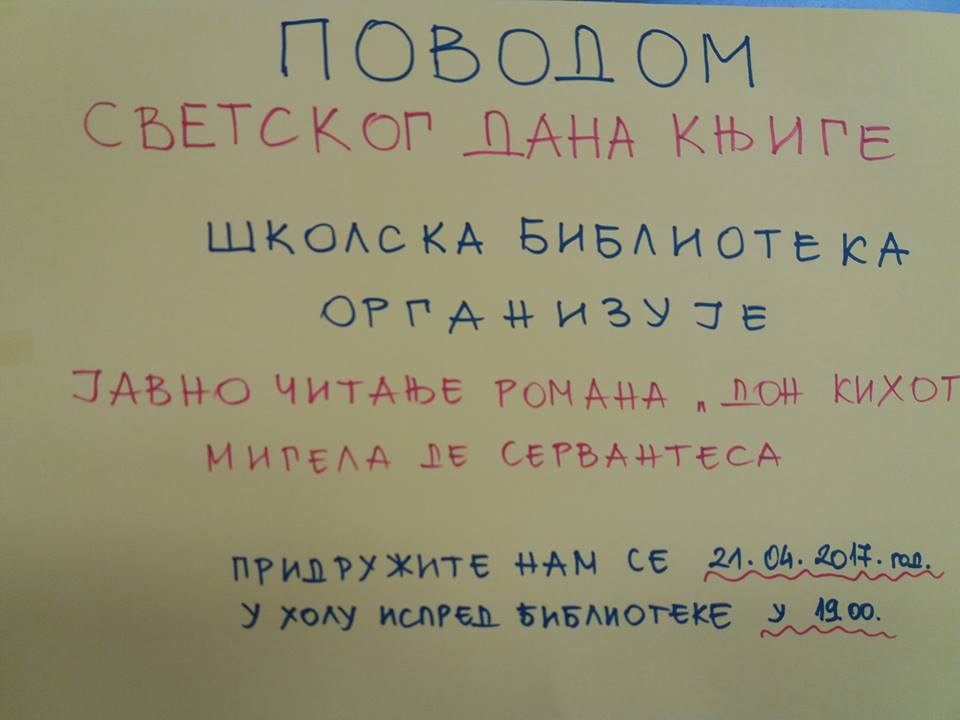 ПОВОДОМ
СВЕТСКОГ ДАНА КЊИГЕ
ШКОЛСКА БИБЛИОТЕКА
ОРГАНИЗУЈЕ
ЈАВНО ЧИТАЊЕ РОМАНА „ ДОН КИХОТ
МИГЕЛА ДЕ СЕРВАНТЕСА
ПРИДРУЖИТЕ НАМ СЕ 21.04.2017. год.
У ХОЛУ ИСПРЕД БИБЛИОТЕКЕ У 19.00.